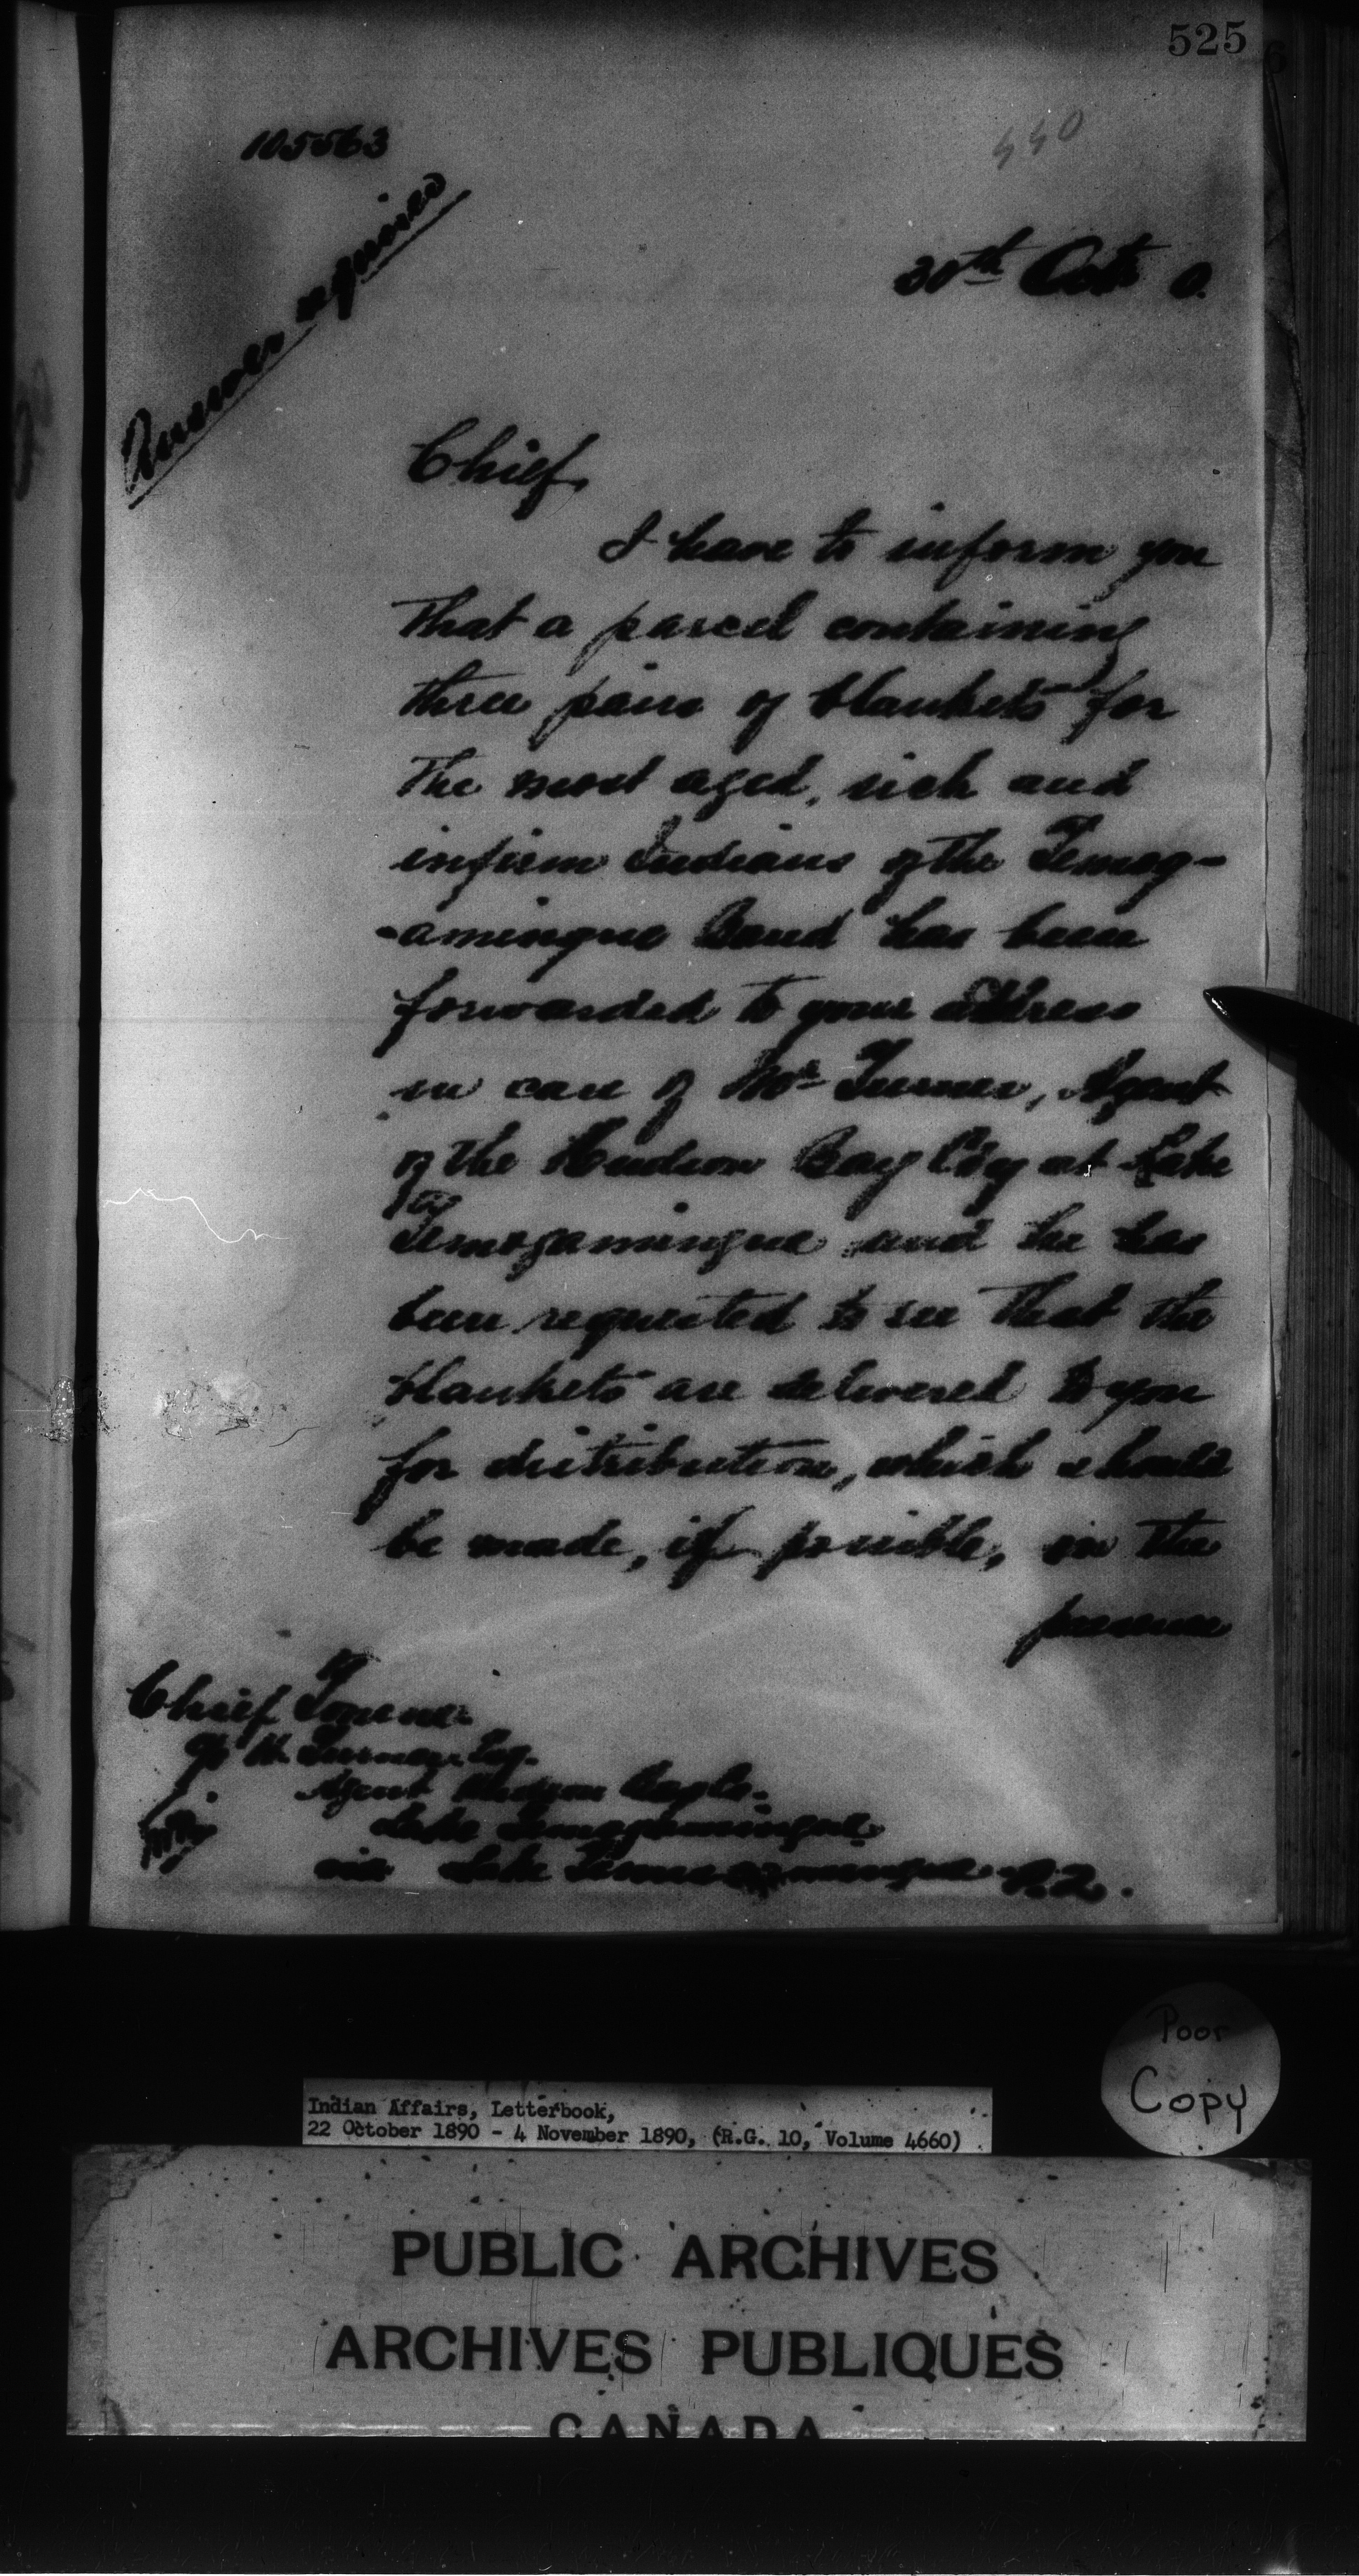 525
105563
440
30th Oct. 0.
Answer required
Chief,
I have to inform you
that a parcel containing
three pairs of blankets for
the most aged, sick and
infirm Indians of the Temog-
-amingue Band has been
forwarded to your address
in care of Mr Turner, Agent
of the Hudson Bay Coy at Lake
Temogamingue and he has
been requested to see that the
blankets are delivered to you
for distribution, which should
be made, if possible, in the
presence
Chief Tonene
c/o H. Turner Esq.
Agent Hudson Bay Co.
Lake Temogamingue
via Lake P.Q.
Poor
Copy
Indian Affairs, Letterbook,
22 October 1890 - 4 November 1890, (R.G. 10, Volume 4660)
PUBLIC ARCHIVES
ARCHIVES PUBLIQUES
CANADA